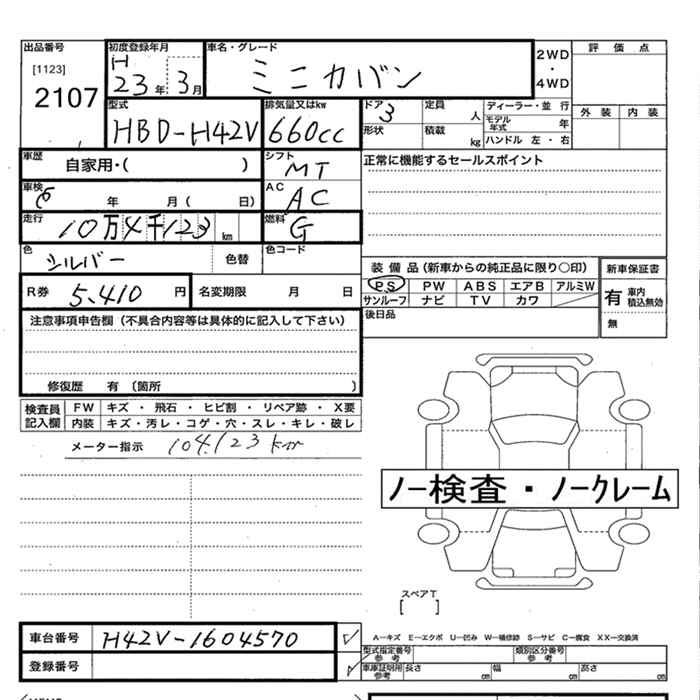 出品番号 初度登録年月 車名・グレード 2WD・4WD 評価点
[1123] H
2107 23年 3月 ミニカバン
外装 内装
型式 排気量又はkw ドア 3 定員 人 ディーラー・並行
HBD-H42V 660cc 形状 積載 kg モデル年式 年
ハンドル 左・右
車歴 自家用・( ) シフト MT 正常に機能するセールスポイント
車検 年 月( 日) AC AC
走行 10万4千123 km 燃料 G
色 シルバー 色替 色コード
装備品(新車からの純正品に限り○印) 新車保証書
R券 5,410 円 名変期限 月 日 PS PW ABS エアB アルミW 有 車内積込無効
サンルーフ ナビ TV カワ
無
注意事項申告欄(不具合内容等は具体的に記入して下さい) 後日品
修復歴 有 〔箇所 〕
検査員記入欄 FW キズ・飛石・ヒビ割・リペア跡・X要
内装 キズ・汚レ・コゲ・穴・スレ・キレ・破レ
メーター指示 104,123 km
ノー検査・ノークレーム
スペアT
[ ]
車台番号 H42V-1604570 A-キズ E-エクボ U-凹み W-補修跡 S-サビ C-腐食 XX-交換済
型式指定番号 参考 類別区分番号 参考
登録番号 車庫証明用 参考 長さ cm 幅 cm 高さ cm